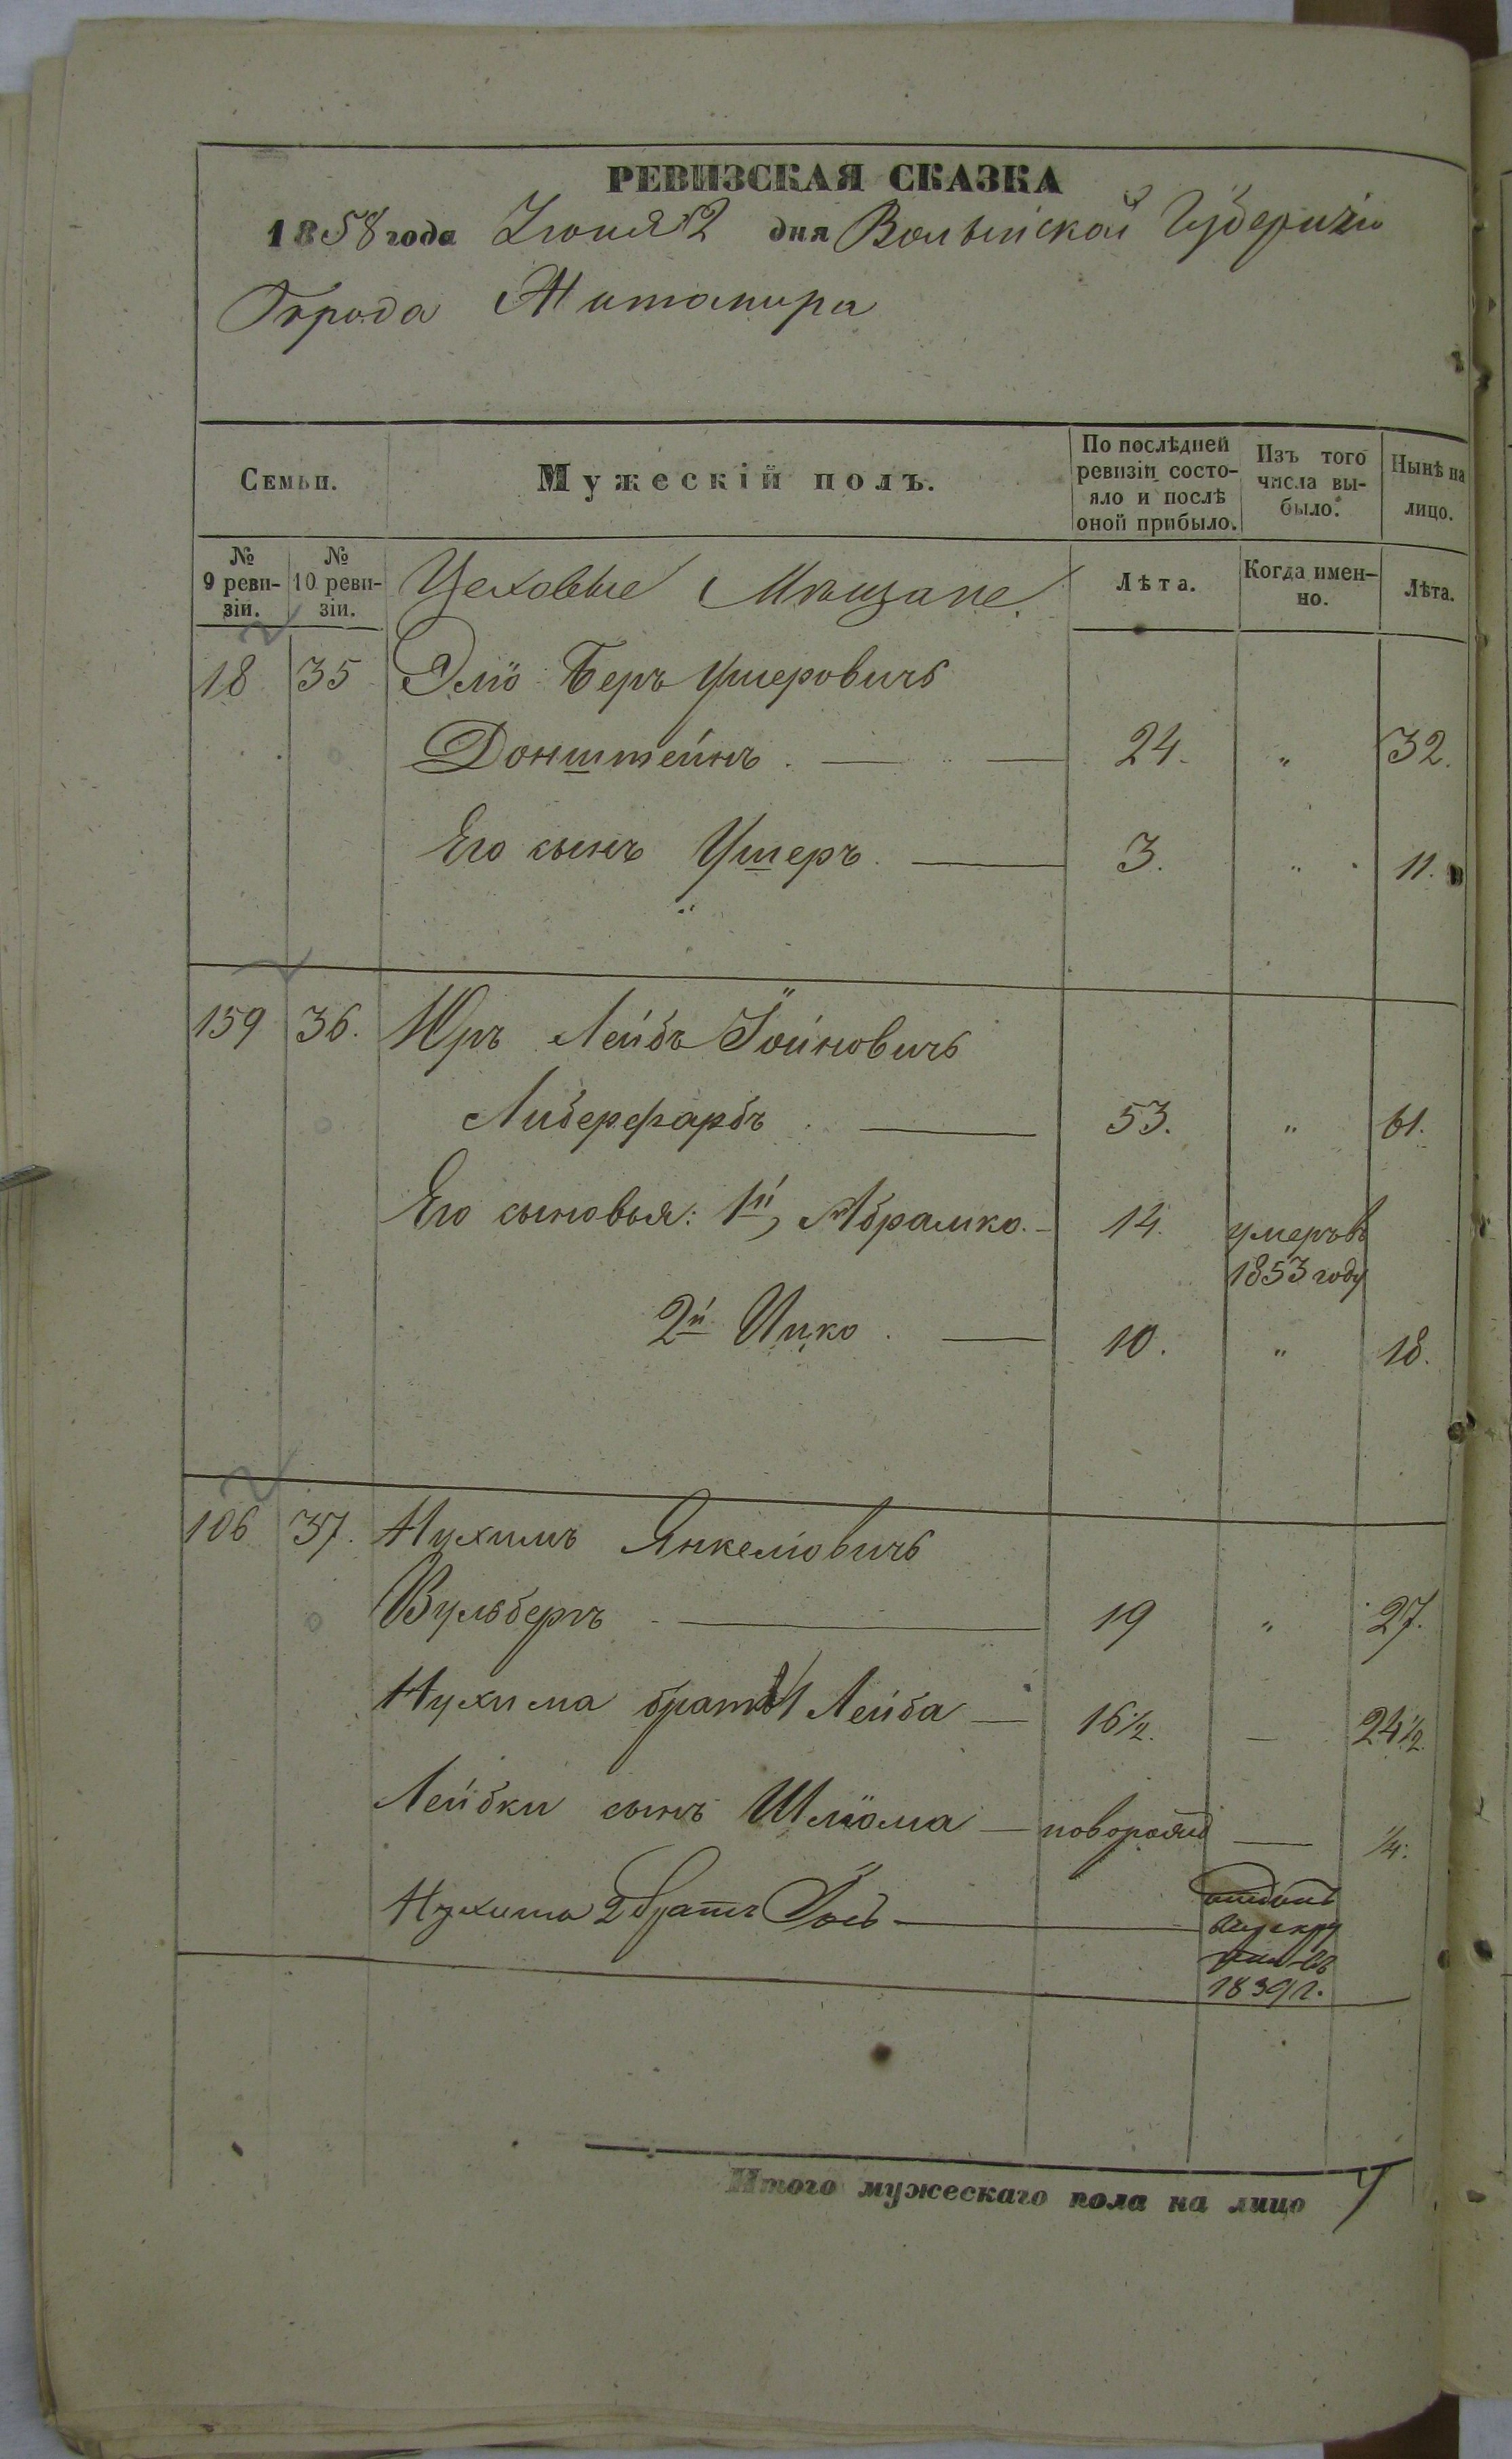 РЕВИЗСКАЯ СКАЗКА
1858 года Іюня 2 дня Волынской Губерніи
Города Житомира
Семьи.
Мужескій полъ.
По послѣдней ревизіи состо-
яло и послѣ
оной прибыло.
Изъ того
числа вы-
было.
Нынѣ на
лицо.
№
9 реви-
зіи.
№
10 реви-
зіи.
Цеховые Мѣщане.
Лѣта.
Когда имен-
но.
Лѣта.
18 35 Эліо Беръ Ушеровичъ
Донштейнъ. 24. " 32.
Его сынъ Ушеръ. 3. " 11.
159 36. Юръ Лейбъ Іойновичъ
Либерфарбъ. 53. " 61.
Его сыновья: 1й, Абрамко. 14. умеръ въ
1853 году
2й Ицко. 10. " 18.
106 37. Нухимъ Янкеліовичъ
Вульбергъ 19 " 27.
Нухима братъ 1 Лейба — 16½. — 24½.
Лейбки сынъ Шліома — новорож — ¼.
Нухима 2 братъ Іось
1839 г.
Итого мужескаго пола на лицо 7